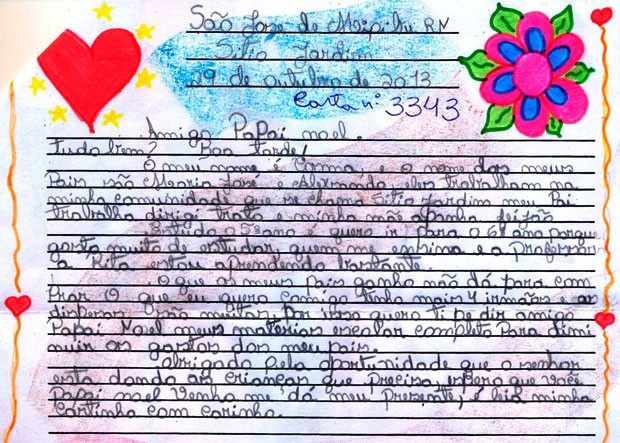 São José de Mipibu RN
Sitio Jardim
29 de outubro de 2013
Carta nº 3343
Amigo Papai noel.
Tudo bem? Boa tarde!
O meu nome é e o nome dos meus
Pais são Maria José e Alexrando eles trabalham na
minha comunidade que se chama Sitio Jardim meu Pai
trabalha dirigi trato e minha mãe apanha feijão
Estudo o 5º ano é quero ir para o 6º ano porque
gosto muito de estudar, quem me ensina e a professora
a Rita estou aprendendo bastante.
O que os meus pais ganha não dá para com
prar O que eu quero comigo tinha mais 4 irmãos e as
disperas são muitas Por isso quero ti pedir amigo
Papai Noel meus materiais escolar completo Para dimi
nuir os gastos dos meu pais.
Obrigado pela oportunidade que o senhor
esta dando as crianças que precisa, espero que você
Papai noel venha me dá meu presente, e leia minha
cartinha com carinho.